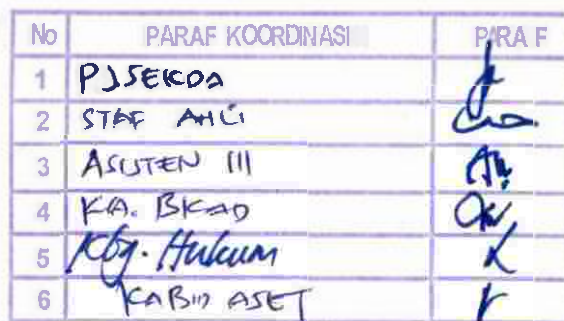 No PARAF KOORDINASI PARAF
1 PJ SEKDA
2 STAF AHLI
3 ASISTEN III
4 KA. BKAD
5 Kbg. Hukum
6 KABID ASET